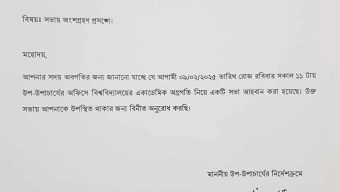 বিষয়ঃ সভায় অংশগ্রহণ প্রসঙ্গে।
মহোদয়,
আপনার সদয় অবগতির জন্য জানানো যাচ্ছে যে আগামী ০৯/০২/২০২৫ তারিখ রোজ রবিবার সকাল ১১ টায়
উপ-উপাচার্যের অফিসে বিশ্ববিদ্যালয়ের একাডেমিক অগ্রগতি নিয়ে একটি সভা আহবান করা হয়েছে। উক্ত
সভায় আপনাকে উপস্থিত থাকার জন্য বিনীত অনুরোধ করছি।
মাননীয় উপ-উপাচার্যের নির্দেশক্রমে